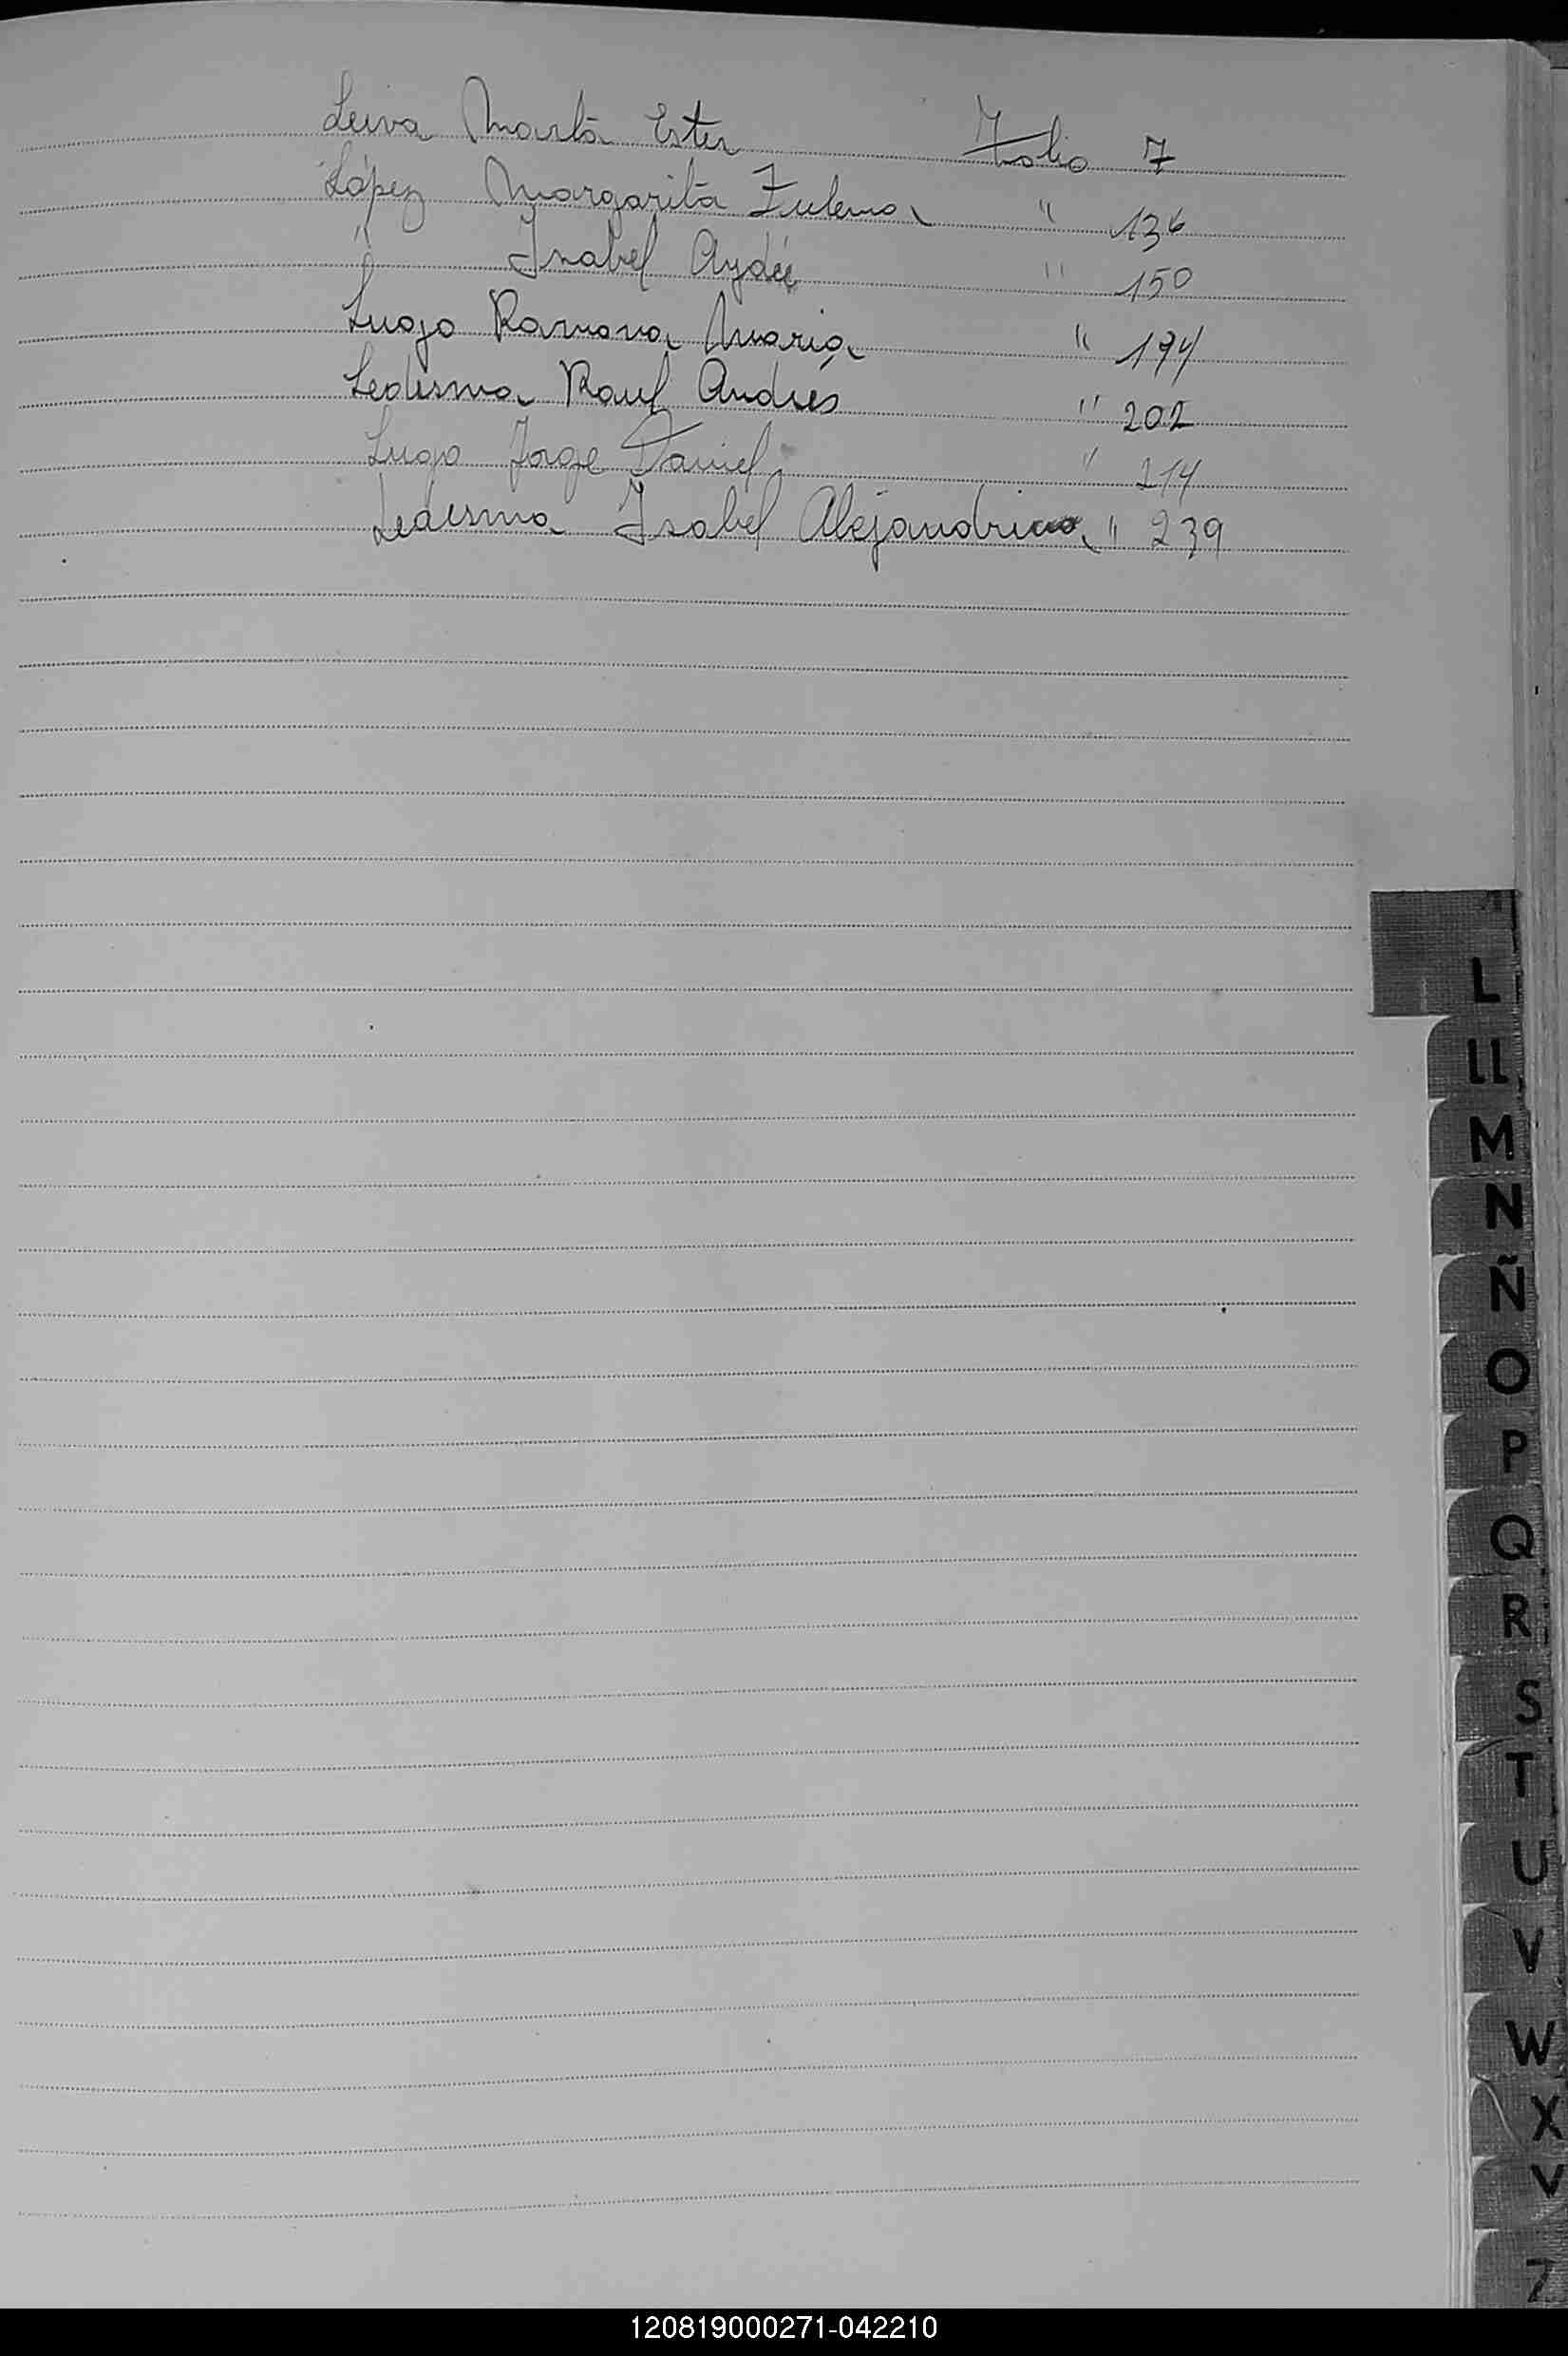 Leiva Marta Ester Folio 7
López Margarita Zulema " 136
" Isabel Aydée " 150
Lugo Ramona Maria " 194
Ledesma Raul Andrés " 202
Lugo Jorge Daniel " 214
Ledesma Isabel Alejandrina " 239
L
LL
M
N
Ñ
O
P
Q
R
S
T
U
V
W
X
Y
Z
120819000271-042210